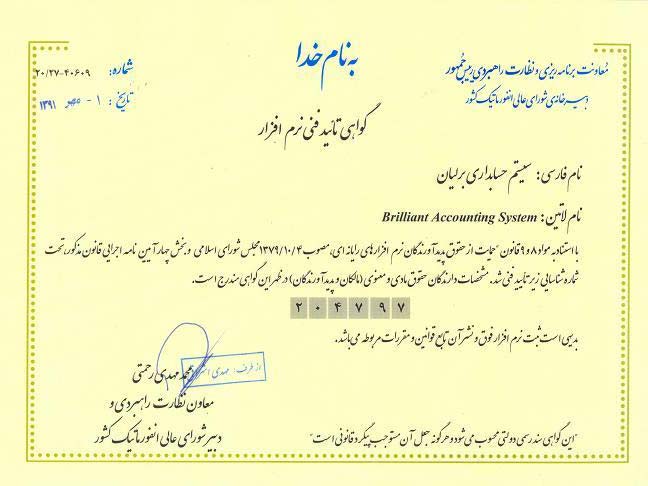 به نام خدا
معاونت برنامه ریزی و نظارت راهبردی رییس جمهور
دبیرخانه‌ی شورای عالی انفورماتیک کشور
شماره: ۲۰/۲۷-۴۰۶۰۹
تاریخ: ۱ - مهر ۱۳۹۱
گواهی تائید فنی نرم افزار
نام فارسی: سیستم حسابداری برلیان
نام لاتین: Brilliant Accounting System
با استناد به مواد ۸ و ۹ قانون "حمایت از حقوق پدیدآورندگان نرم افزارهای رایانه ای، مصوب ۱۳۷۹/۱۰/۴ مجلس شورای اسلامی و بخش چهار آیین نامه اجرایی قانون مذکور، تحت
شماره شناسایی زیر تایید فنی شد. مشخصات دارندگان حقوق مادی و معنوی (مالکان و پدیدآورندگان) در ظهر این گواهی مندرج است.
۲۰۴۷۹۷
بدیهی است ثبت نرم افزار فوق و نشر آن تابع قوانین و مقررات مربوطه می باشد.
از طرف: مهدی
محمد مهدی رحمتی
معاون نظارت راهبردی و
دبیر شورای عالی انفورماتیک کشور
"این گواهی سند رسمی دولتی محسوب می شود و هرگونه جعل آن مستوجب پیگرد قانونی است"